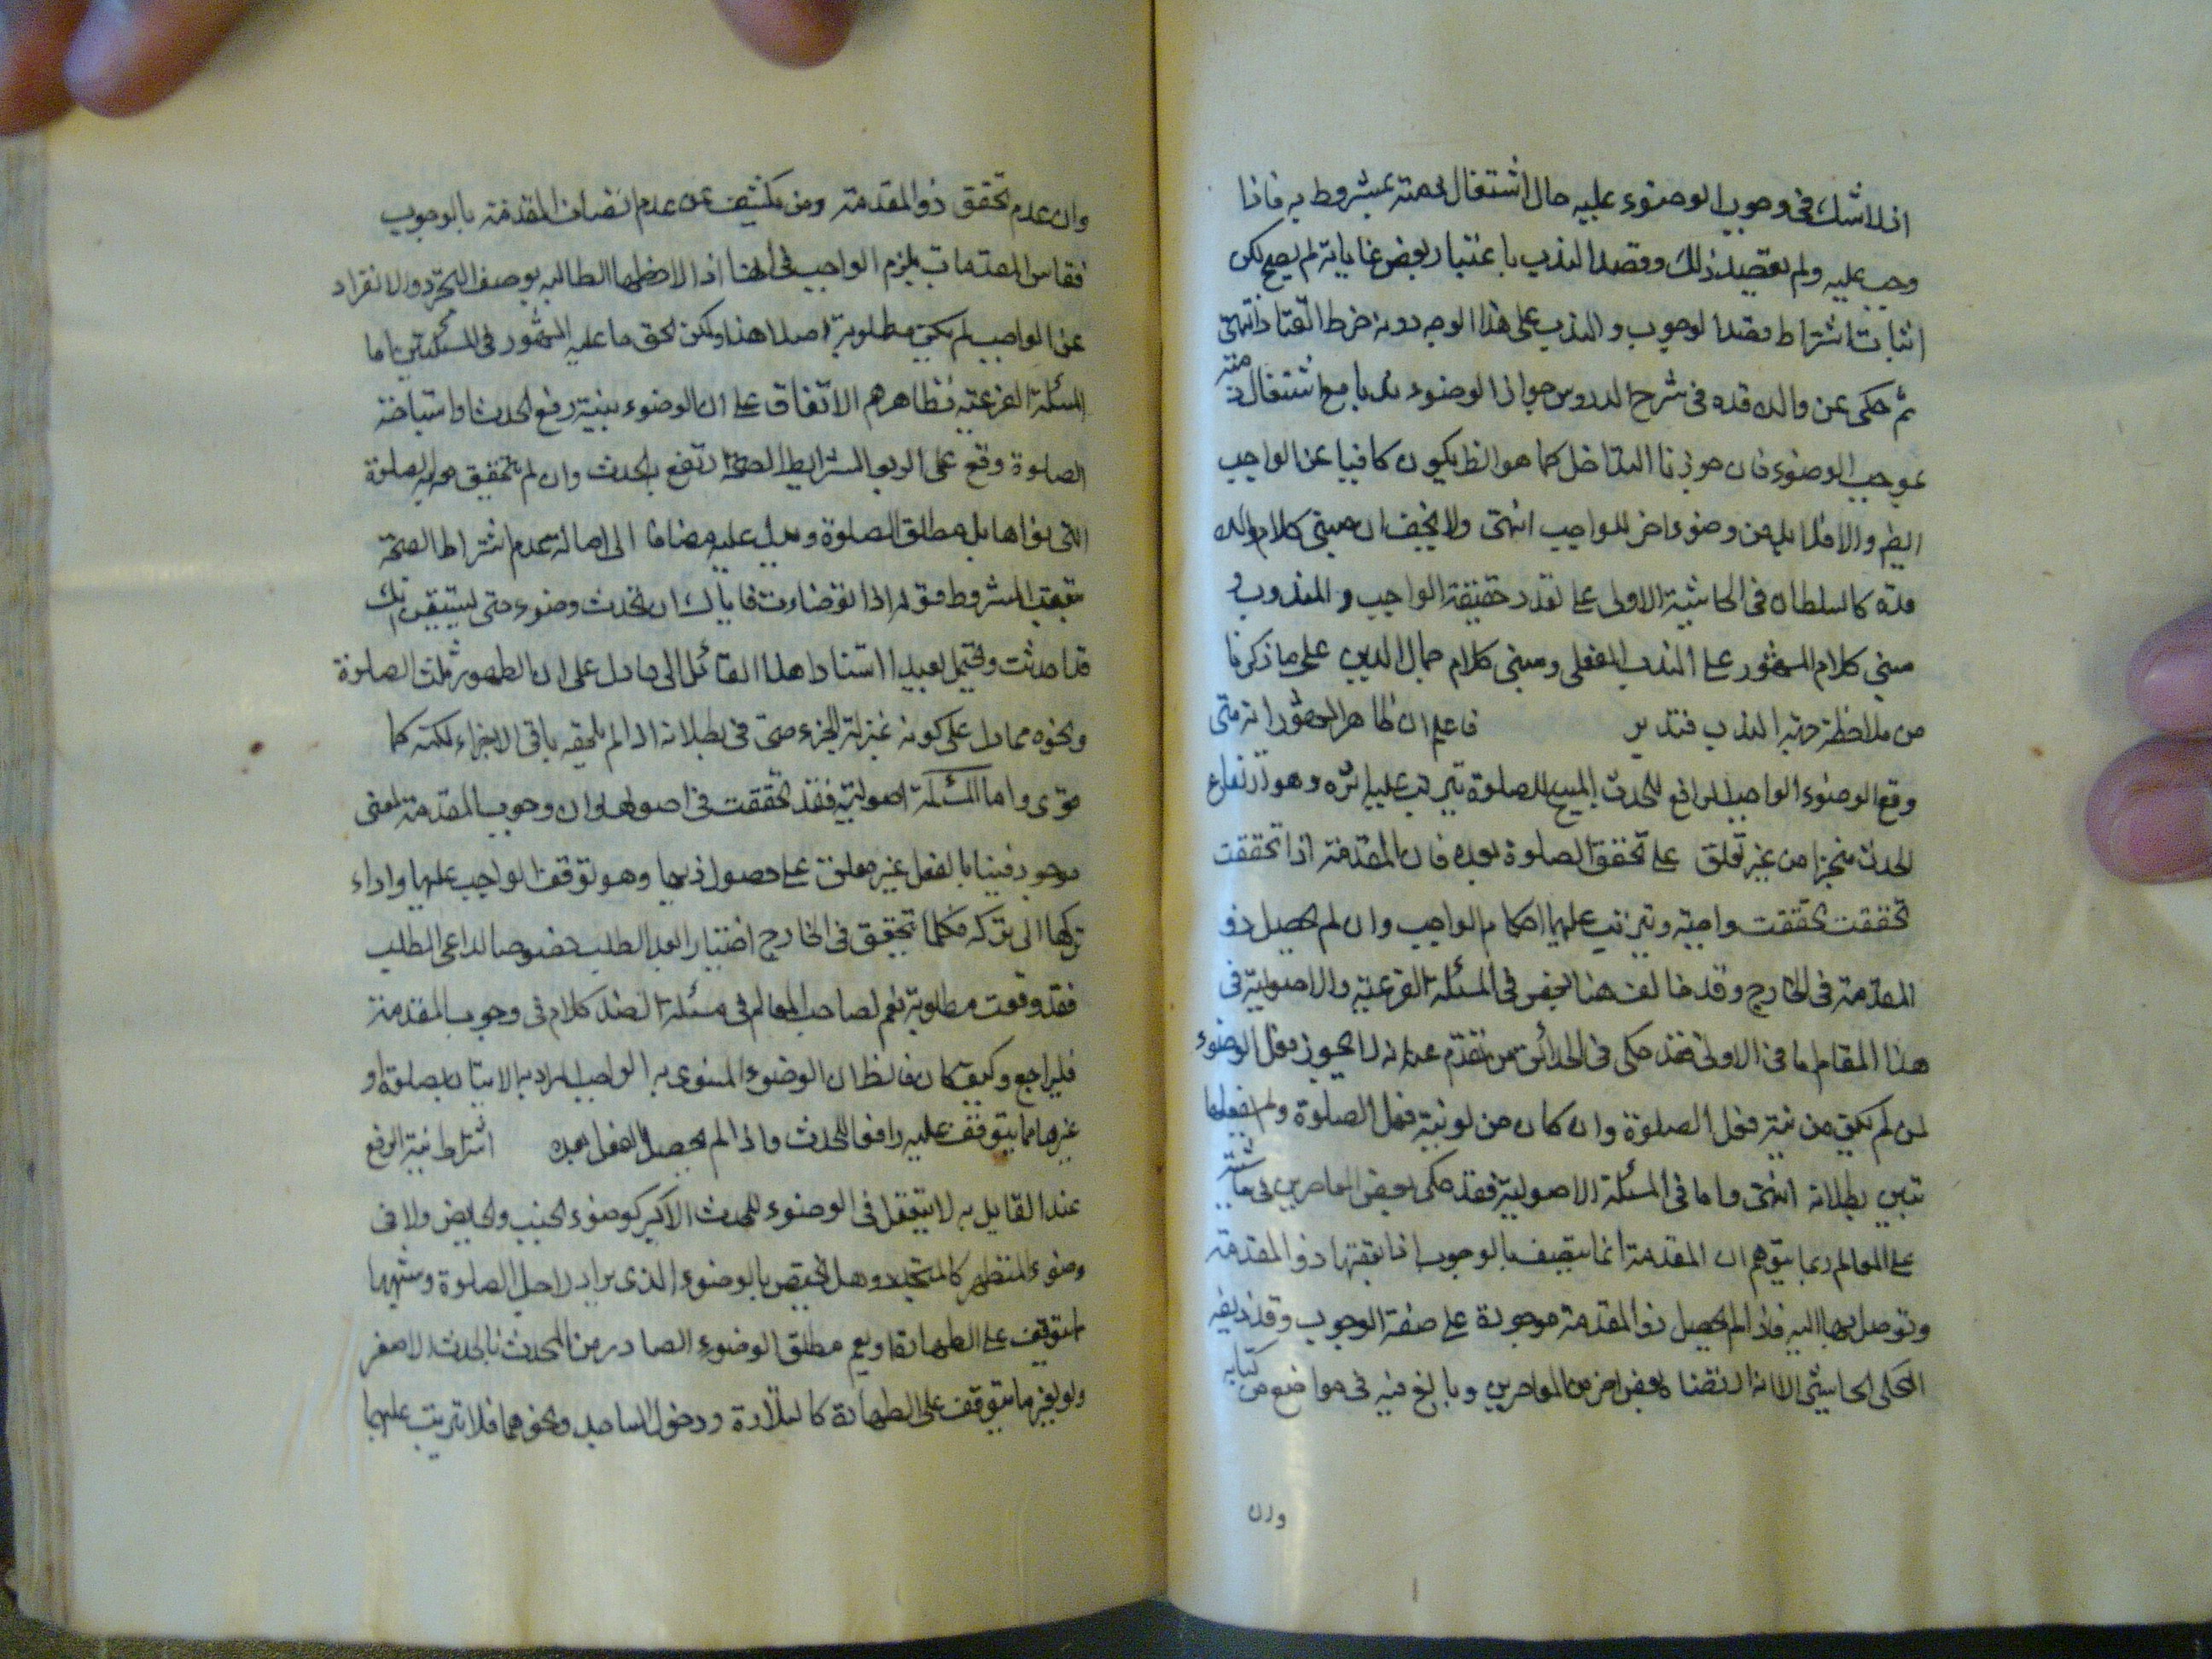 اذ لا شك في وجوب الوضوء عليه حال اشتغال ذمته بمشروط به فاذا
وجب عليه ولم يقصد ذلك وقصد الندب باعتبار بعض غاياته لم يصح لكن
اثبات اشتراط قصد الوجوب والندب على هذا الوجه دونه خرط القتاد انتهى
ثم حكى عن والده قده في شرح الدروس جواز الوضوء ندبا مع اشتغال ذمته
بموجب الوضوء فان جوزنا التداخل كما هو الظ يكون كافيا عن الواجب
ايضا والا فلا بد من وضوء اخر للواجب انتهى ولا يخفى ان مبنى كلام والده
قده كالسلطان في الحاشية الاولى على تعدد حقيقة الواجب والمندوب و
مبنى كلام المشهور على الندب الفعلي ومبنى كلام جمال الدين على ما ذكرنا
من ملاحظة جهة الندب فتدبر فاعلم ان ظاهر المشهور انه متى
وقع الوضوء الواجب الرافع للحدث المبيح للصلوة تيرتب عليه اثره وهو ارتفاع
الحدث منجزا من غير تعلق على تحقق الصلوة بعده فان المقدمة اذا تحققت
تحققت تحققت واجبة وتيرتب عليها احكام الواجب وان لم يحصل ذو
المقدمة في الخارج وقد خالف هنا بعض في المسئلة الفرعية والاصولية في
هذا المقام اما في الاولى فقد حكى في الحدائق من تقدم عدا انه لا يجوز فعل الوضوء
لمن لم يكن من نية فعل الصلوة وان كان من لو نية فعل الصلوة ولم يفعلها
تبين بطلانه انتهى واما في المسئلة الاصولية فقد حكى بعض المعاصرين في حاشيته
على المعالم ربما يتوهم ان المقدمة انما يتصف بالوجوب اذا تعقبها ذو المقدمة
وتوصل بها اليه فاذا لم يحصل ذو المقدمة موجودة على صفة الوجوب وقد زيفه
المحكى الحاشي الا انه ارتضاه بعض اخر من المعاصرين وبالغ فيه في مواضع من كتابه
وان
وان عدم تحقق ذو المقدمة ومن يكشف عن عدم اتصاف المقدمة بالوجوب
فقاس المقدمات يلزم الواجب في انها اذا لاحظها الطالب بوصف التجرد والانفراد
عن الواجب لم يكن مطلوبة اصلا هذا ولكن الحق ما عليه المشهور في المسئلتين اما
المسئلة الفرعية فظاهرهم الاتفاق على ان الوضوء بنية رفع الحدث او استباحة
الصلوة وقع على الوجه المشرايط الصحة ارتفع به الحدث وان لم يتحقق معه الصلوة
التي نواها بل مطلق الصلوة ويدل عليه مضافا الى اصالة عدم اشتراط الصحة
بتعقب المشروط قوله اذا توضات فاياك ان تحدث وضوء حتى تستيقن انك
قد احدثت ويحتمل بعيدا استنادا هذا القائل الى ما دل على ان الطهور ثلث الصلوة
ونحوه مما دل على كونه بمنزلة الجزء حتى في بطلانه اذا لم يلحقه باقى الاجزاء لكنه كما
ترى واما المسئلة اصولية فقد تحققت في اصولها وان وجوب المقدمة لمعنى
موجود فينا بالفعل غير معلق على حصول ذيها وهو توقف الواجب عليها واداء
تركها الى تركه فكلما تحقق في الخارج اختيارا بعد الطلب خصوصا لداعى الطلب
فقد وقعت مطلوبة نعم لصاحب المعالم في مسئلة الضد كلام في وجوب المقدمة
فليراجع وكيف كان فالظ ان الوضوء المنوى به الواجب المراد به الاتيان بصلوة او
غيرها مما يتوقف عليه رافعا للحدث واذا لم يحصل الفعل بعده اشتراط نية الرفع
عند القايل به لا يتعقل في الوضوء للحدث الاكبر كوضوء الجنب والحايض ولا في
وضوء المتطهر كالمتجدد وهل يختص بالوضوء الذي يراد لاجل الصلوة وشبهها
لتوقف على الطهارة او يعم مطلق الوضوء الصادر من المحدث بالحدث الاصغر
ولو لغير ما يتوقف على الطهارة كالتلاوة ودخول المساجد ونحوهما فلا تيرتب عليهما